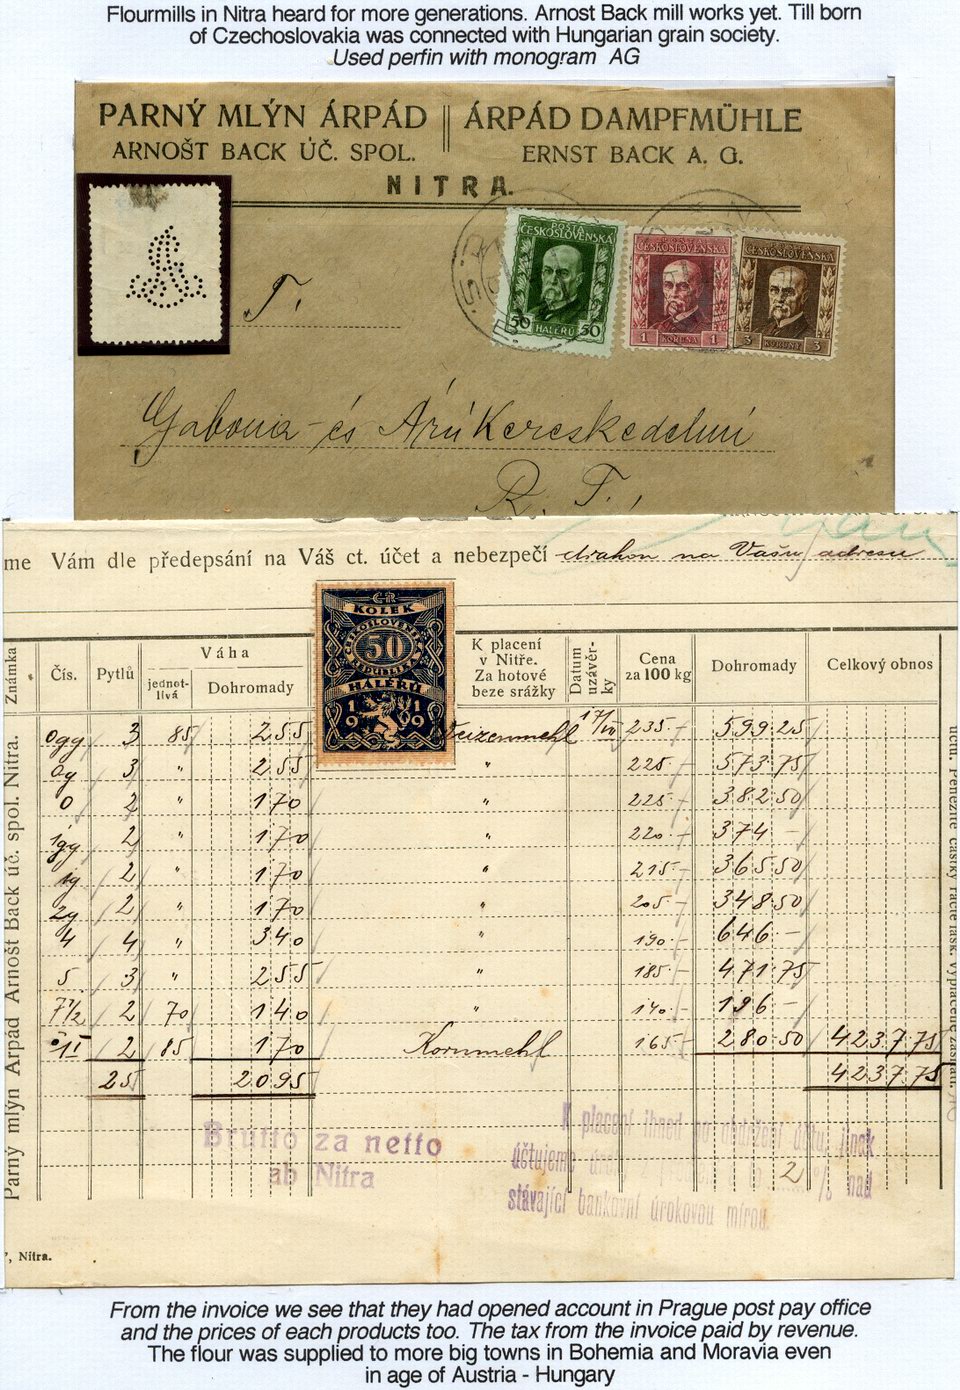 Flourmills in Nitra heard for more generations. Arnost Back mill works yet. Till born
of Czechoslovakia was connected with Hungarian grain society.
Used perfin with monogram AG
PARNÝ MLÝN ÁRPÁD || ÁRPÁD DAMPFMÜHLE
ARNOŠT BACK ÚČ. SPOL. ERNST BACK A. G.
NITRA.
POŠTA
ČESKOSLOVENSKÁ
50 HALÉŘŮ 50
ČESKOSLOVENSKÁ
1 KORUNA 1
ČESKOSLOVENSKÁ
3 KORUNY 3
T.
Gabona és Árúkereskedelmi
R. T.,
me Vám dle předepsání na Váš ct. účet a nebezpečí drahou na Vašu adresu
ČR
KOLEK
ČESKOSLOVENSKÁ
50
REPUBLIKA
HALÉŘŮ
1919
Známka Čís. Pytlů Váha jednotlivá Dohromady K placení v Nitře. Za hotové beze srážky Datum uzávěrky Cena za 100 kg Dohromady Celkový obnos
0gg 3 85 255 Weizenmehl 17/10 235- 599 25
0g 3 " 255 " 225- 573 75
0 2 " 170 " 225- 382 50
1gg 2 " 170 " 220- 374 -
1g 2 " 170 " 215- 365 50
2g 2 " 170 " 205- 348 50
4 4 " 340 " 190- 646 -
5 3 " 255 " 185- 471 75
7 1/2 2 70 140 " 140- 196 -
II 2 85 170 Kornmehl 165- 280 50 4237 75
25 2095 4237 75
Parný mlýn Árpád Arnošt Back úč. spol. Nitra.
účtu. Peněžné částky račte lask. vyplacené zaslati.
Brutto za netto
ab Nitra
K placení ihned po obdržení účtu, jinak
účtujeme 2 % nad
stávající bankovní úrokovou mírou.
", Nitra.
From the invoice we see that they had opened account in Prague post pay office
and the prices of each products too. The tax from the invoice paid by revenue.
The flour was supplied to more big towns in Bohemia and Moravia even
in age of Austria - Hungary